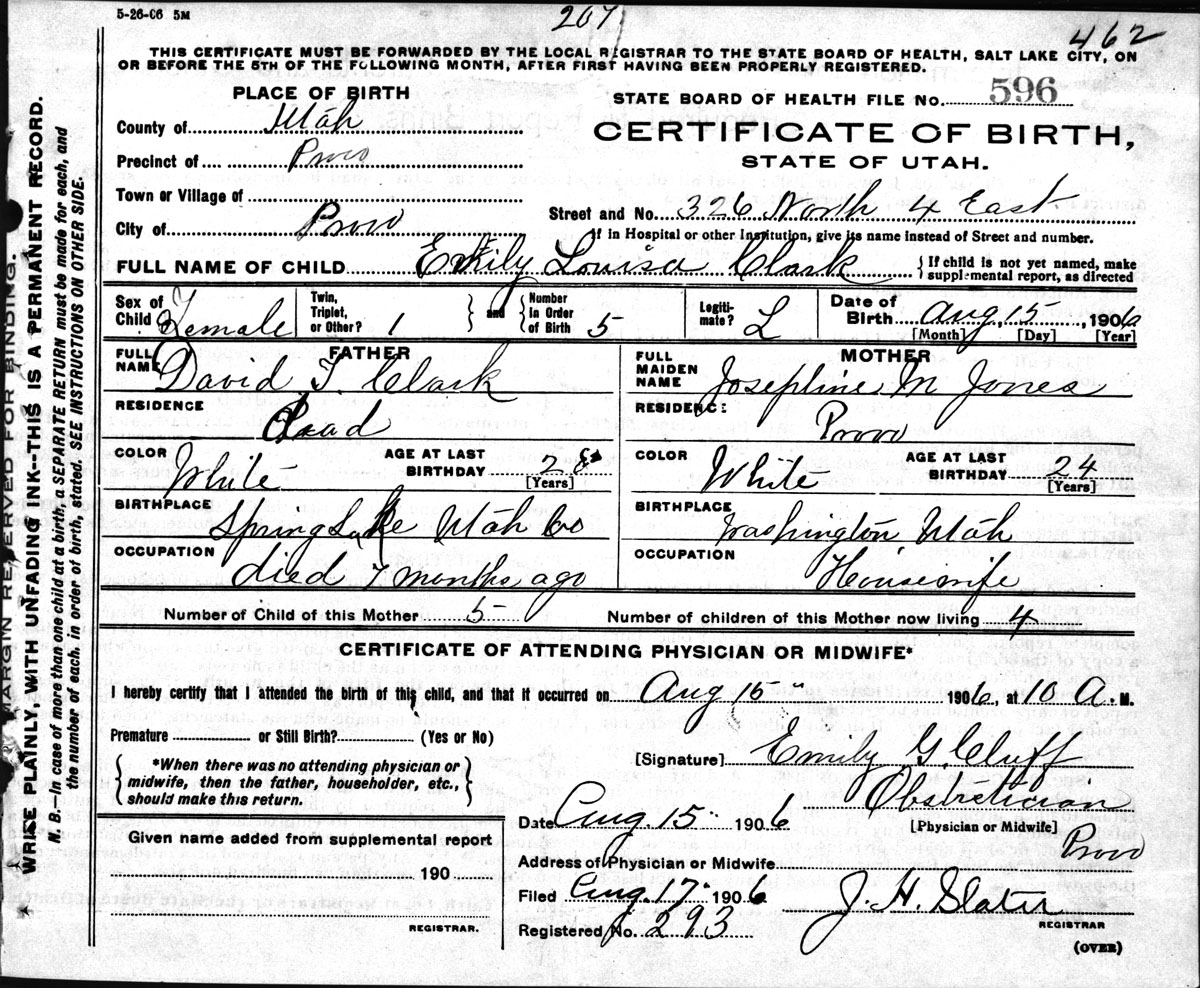 5-26-06 5M
207
462
THIS CERTIFICATE MUST BE FORWARDED BY THE LOCAL REGISTRAR TO THE STATE BOARD OF HEALTH, SALT LAKE CITY, ON
OR BEFORE THE 5TH OF THE FOLLOWING MONTH, AFTER FIRST HAVING BEEN PROPERLY REGISTERED.
MARGIN RESERVED FOR BINDING.
WRITE PLAINLY, WITH UNFADING INK--THIS IS A PERMANENT RECORD.
N. B.--In case of more than one child at a birth, a SEPARATE RETURN must be made for each, and
the number of each, in order of birth, stated. SEE INSTRUCTIONS ON OTHER SIDE.
PLACE OF BIRTH
County of Utah
Precinct of Provo
Town or Village of
City of Provo
STATE BOARD OF HEALTH FILE No. 596
CERTIFICATE OF BIRTH,
STATE OF UTAH.
Street and No. 326 North 4 East
If in Hospital or other Institution, give its name instead of Street and number.
FULL NAME OF CHILD Emily Louisa Clark {If child is not yet named, make
supplemental report, as directed
Sex of Child Female
Twin, Triplet, or Other? 1 } and { Number in Order of Birth 5
Legiti-mate? L
Date of Birth Aug, 15, 1906
[Month] [Day] [Year]
FATHER
FULL NAME David T. Clark
RESIDENCE Dead
COLOR White AGE AT LAST BIRTHDAY 28
[Years]
BIRTHPLACE Spring Lake Utah Co
OCCUPATION died 7 months ago
MOTHER
FULL MAIDEN NAME Josephine M Jones
RESIDENCE Provo
COLOR White AGE AT LAST BIRTHDAY 24
[Years]
BIRTHPLACE Washington, Utah
OCCUPATION Housewife
Number of Child of this Mother 5 Number of children of this Mother now living 4
CERTIFICATE OF ATTENDING PHYSICIAN OR MIDWIFE*
I hereby certify that I attended the birth of this child, and that it occurred on Aug 15 1906, at 10 A. M.
Premature or Still Birth? (Yes or No)
{ *When there was no attending physician or
midwife, then the father, householder, etc.,
should make this return. }
[Signature] Emily G. Cluff
Obstretician
Date Aug. 15 1906 [Physician or Midwife]
Given name added from supplemental report
190
REGISTRAR.
Address of Physician or Midwife Provo
Filed Aug. 17 1906 J. H. Slater
REGISTRAR
Registered No. 293
(OVER)